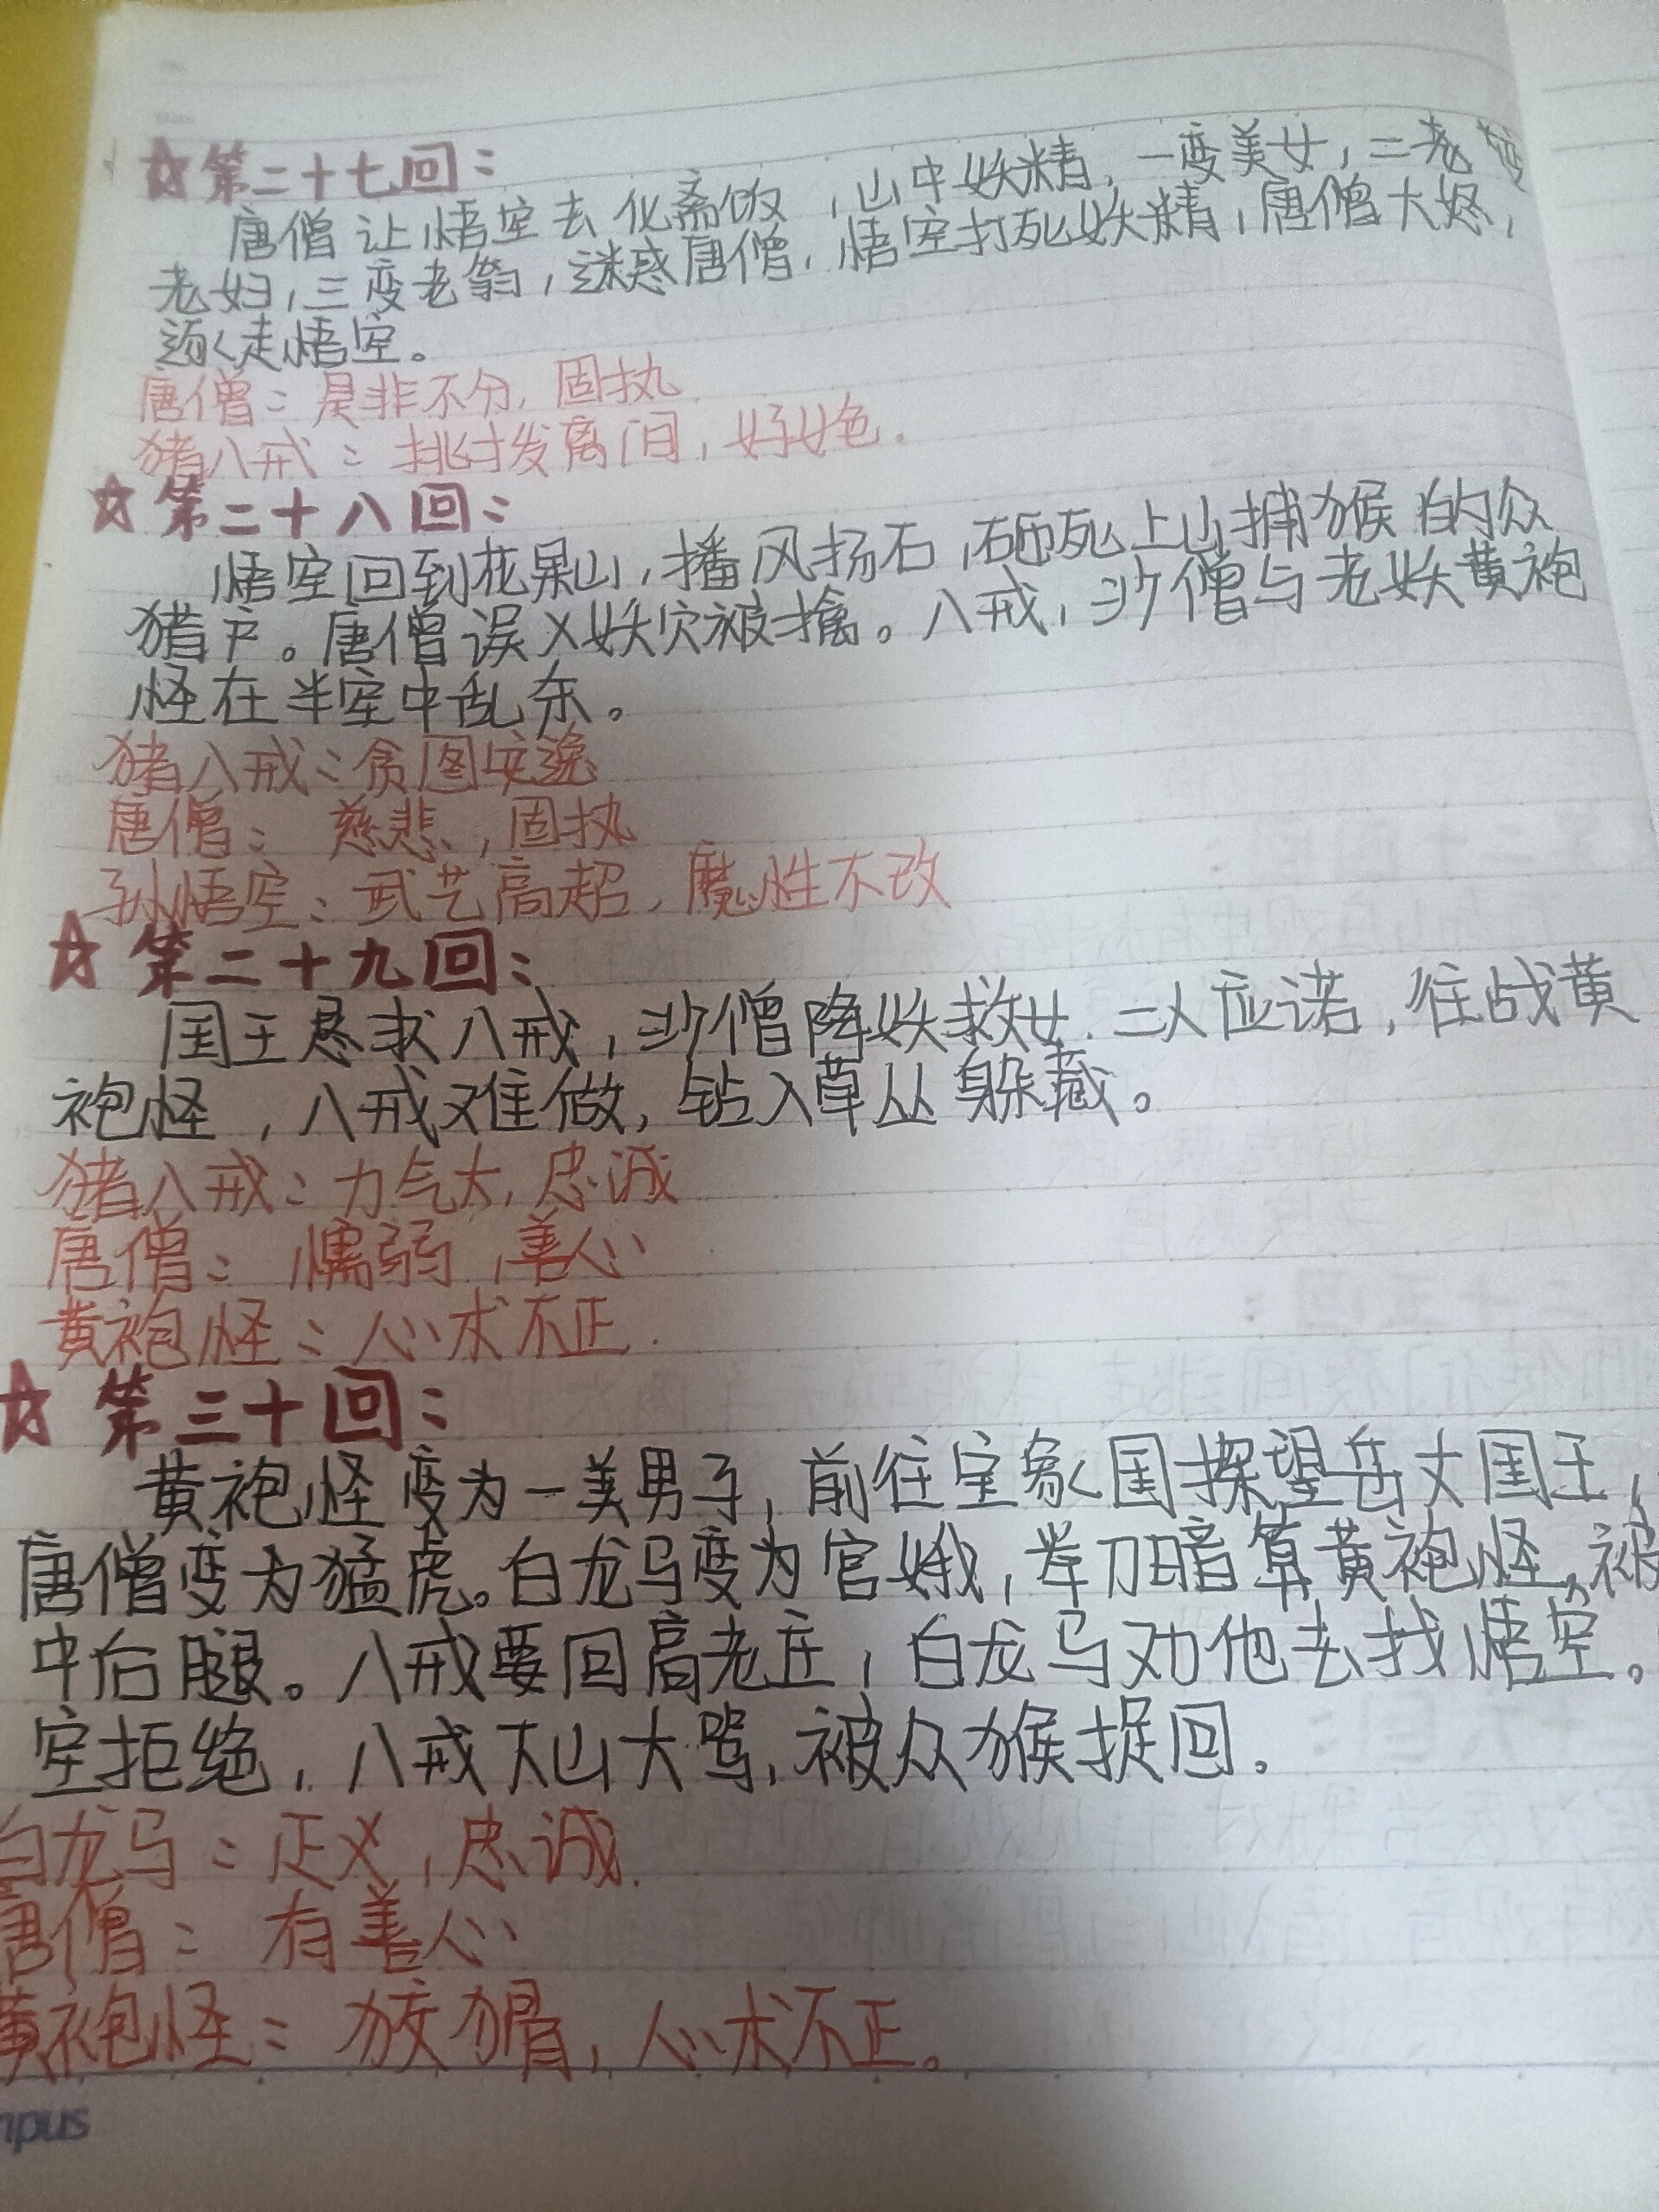 ☆第二十七回：
唐僧让悟空去化斋饭，山中妖精，一变美女，二老
老妇，三变老翁，迷惑唐僧，悟空打死妖精，唐僧大怒，
逐走悟空。
唐僧：是非不分，固执
猪八戒：挑拨离间，好女色。
☆第二十八回：
悟空回到花果山，播风扬石，砸死上山捕猴的众
猎户。唐僧误入妖穴被擒。八戒，沙僧与老妖黄袍
怪在半空中乱东。
猪八戒：贪图安逸
唐僧：慈悲，固执
孙悟空：武艺高超，魔性不改
☆第二十九回：
国王恳求八戒，沙僧降妖救女．二人应诺，往战黄
袍怪，八戒难做，钻入草丛躲藏。
猪八戒：力气大，忠诚
唐僧：懦弱，善心
黄袍怪：心术不正．
☆第三十回：
黄袍怪变为一美男子，前往宝象国探望岳丈国王，
唐僧变为猛虎。白龙马变为宫娥，举刀暗算黄袍怪，被
中后腿。八戒要回高老庄，白龙马劝他去找悟空。
空拒绝，八戒下山大骂，被众猴捉回。
白龙马：正义，忠诚．
唐僧：有善心
黄袍怪：狡猾，心术不正。
mpus